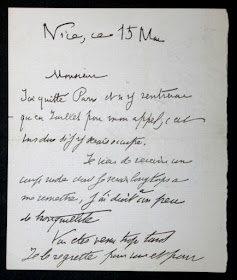 Nice, ce 15 Mai
Monsieur
Je quitte Paris et n'y rentrerai
qu'en Juillet pour mon appel, c'est
vous dire si j'y serais occupé.
Je viens de recevoir un
coup rude dont je serai longtemps à
me remettre, j'ai droit à un peu
de tranquillité
Vous êtes venu trop tard
Je le regrette pour vous et pour